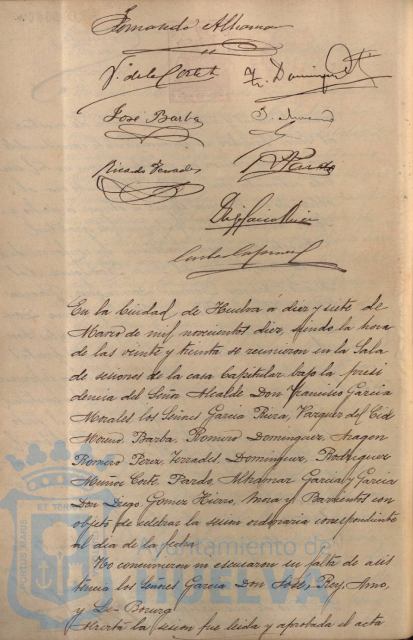 Fernando Alhama
J. de la Corte
F. Dominguez
José Barba
J. Moreno
Ricardo Terrades
R. Pardo
En la Ciudad de Huelva á diez y siete de
Marzo de mil novecientos diez, siendo la hora
de las veinte y treinta se reunieron en la Sala
de sesiones de la casa Capitular bajo la presi
dencia del Señor Alcalde Don Francisco Garcia
Morales los Señores Garcia Vazquez del Cid
Moreno Barba, Romero Dominguez, Aragon
Romero Perez, Terrades, Dominguez, Bodriguez
Muñoz Corte Pardo Alhamar Garcia y Garcia
Don Diego, Gomez Hierro, Mora y Barrientos con
objeto de celebrar la sesion ordinaria correspondiente
al dia de la fecha
No concurrieron ni escusaron su falta de asis
tencia los Señores Garcia Don José, Rey, Amo,
y Le Bourg
Abierta la sesion fue leida y aprobada el acta
PORTUS MARIS
ET TER
Ayuntamiento de
HUELVA